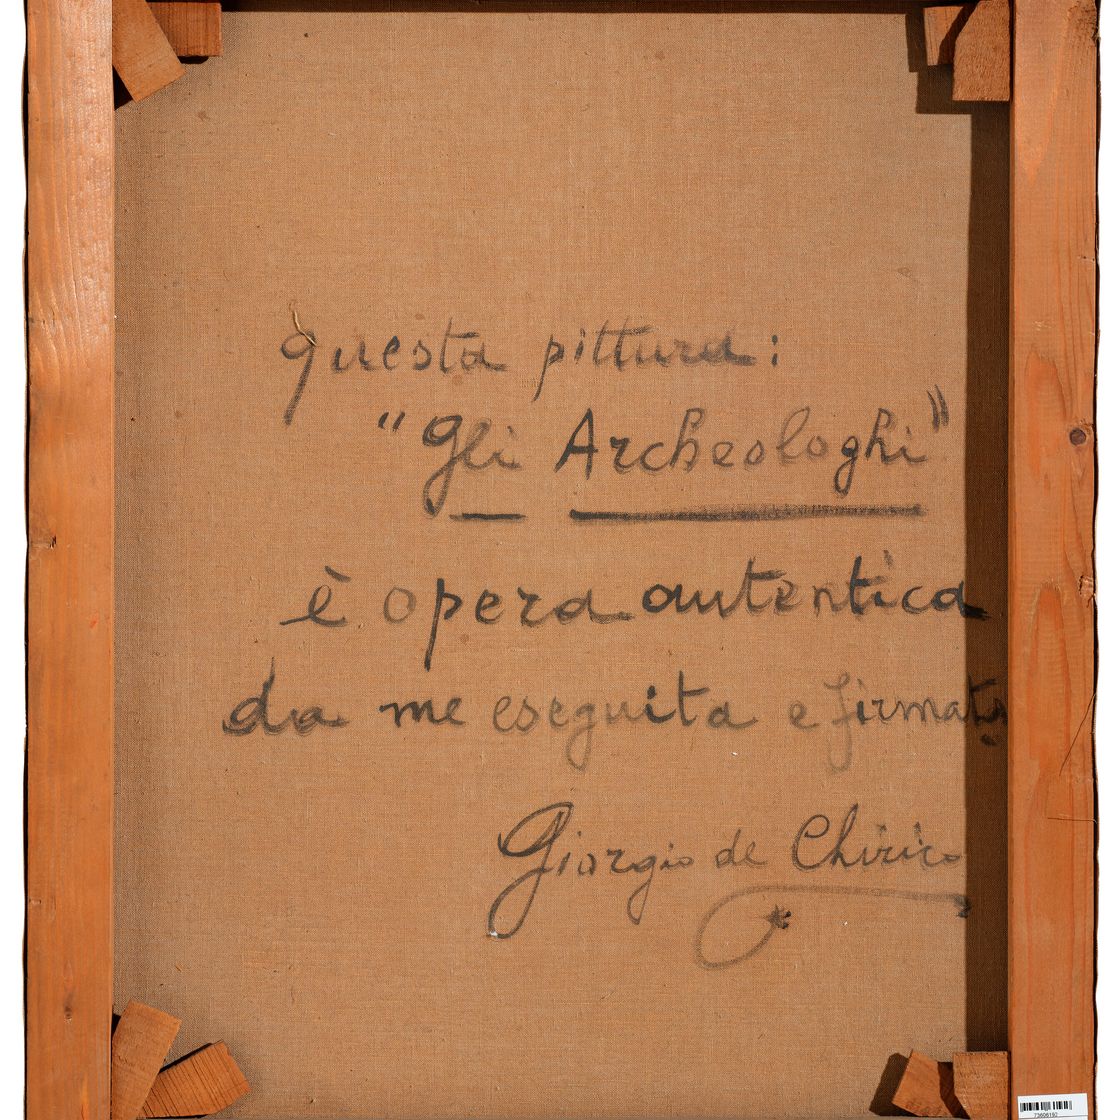 questa pittura:
"Gli Archeologhi"
è opera autentica
da me eseguita e firmata
Giorgio de Chirico
73606192